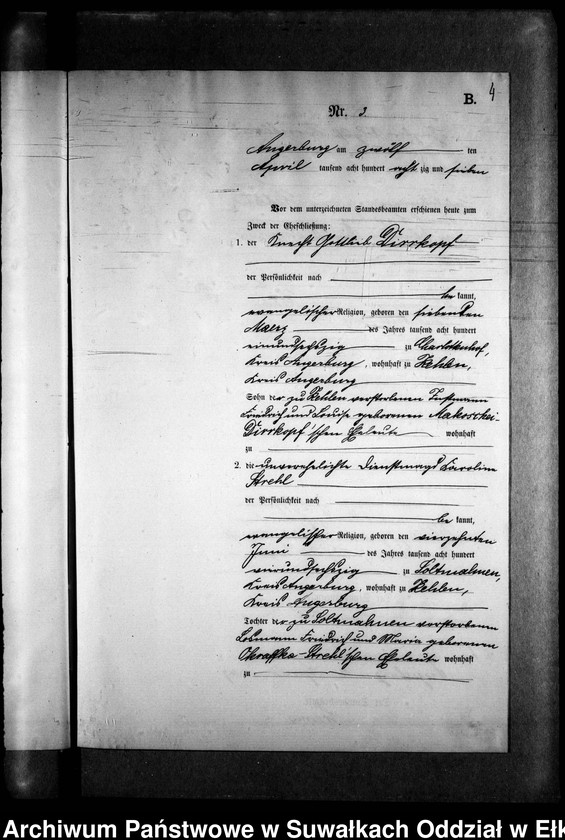 4
B.
Nr. 3
Angerburg am zwölf ten
April tausend acht hundert acht zig und sieben
Vor dem unterzeichneten Standesbeamten erschienen heute zum
Zweck der Eheschließung:
1. der Knecht Gottlieb Dirrkopf
der Persönlichkeit nach
be kannt,
evangelischer Religion, geboren den siebenten
Maerz des Jahres tausend acht hundert
einundsechszig zu Charlottenhof,
Kreis Angerburg, wohnhaft zu Kehlen,
Kreis Angerburg
Sohn der zu Kehlen verstorbenen Instmann
Friedrich und Louise geborenen Makoschei-
Dirrkopf'schen Eheleute wohnhaft
zu
2. die unverehelichte Dienstmagd Karoline
Strehl
der Persönlichkeit nach
be kannt,
evangelischer Religion, geboren den vierzehnten
Juni des Jahres tausend acht hundert
vierundsechszig zu Soltmahnen,
Kreis Angerburg, wohnhaft zu Kehlen,
Kreis Angerburg
Tochter der zu Soltmahnen verstorbenen
Losmann Friedrich und Maria geborenen
Okraffka-Strehl'schen Eheleute wohnhaft
zu
Archiwum Państwowe w Suwałkach Oddział w Ełk